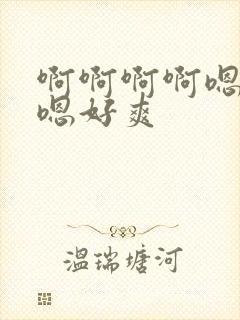 啊啊啊啊嗯
嗯好爽
温瑞塘河